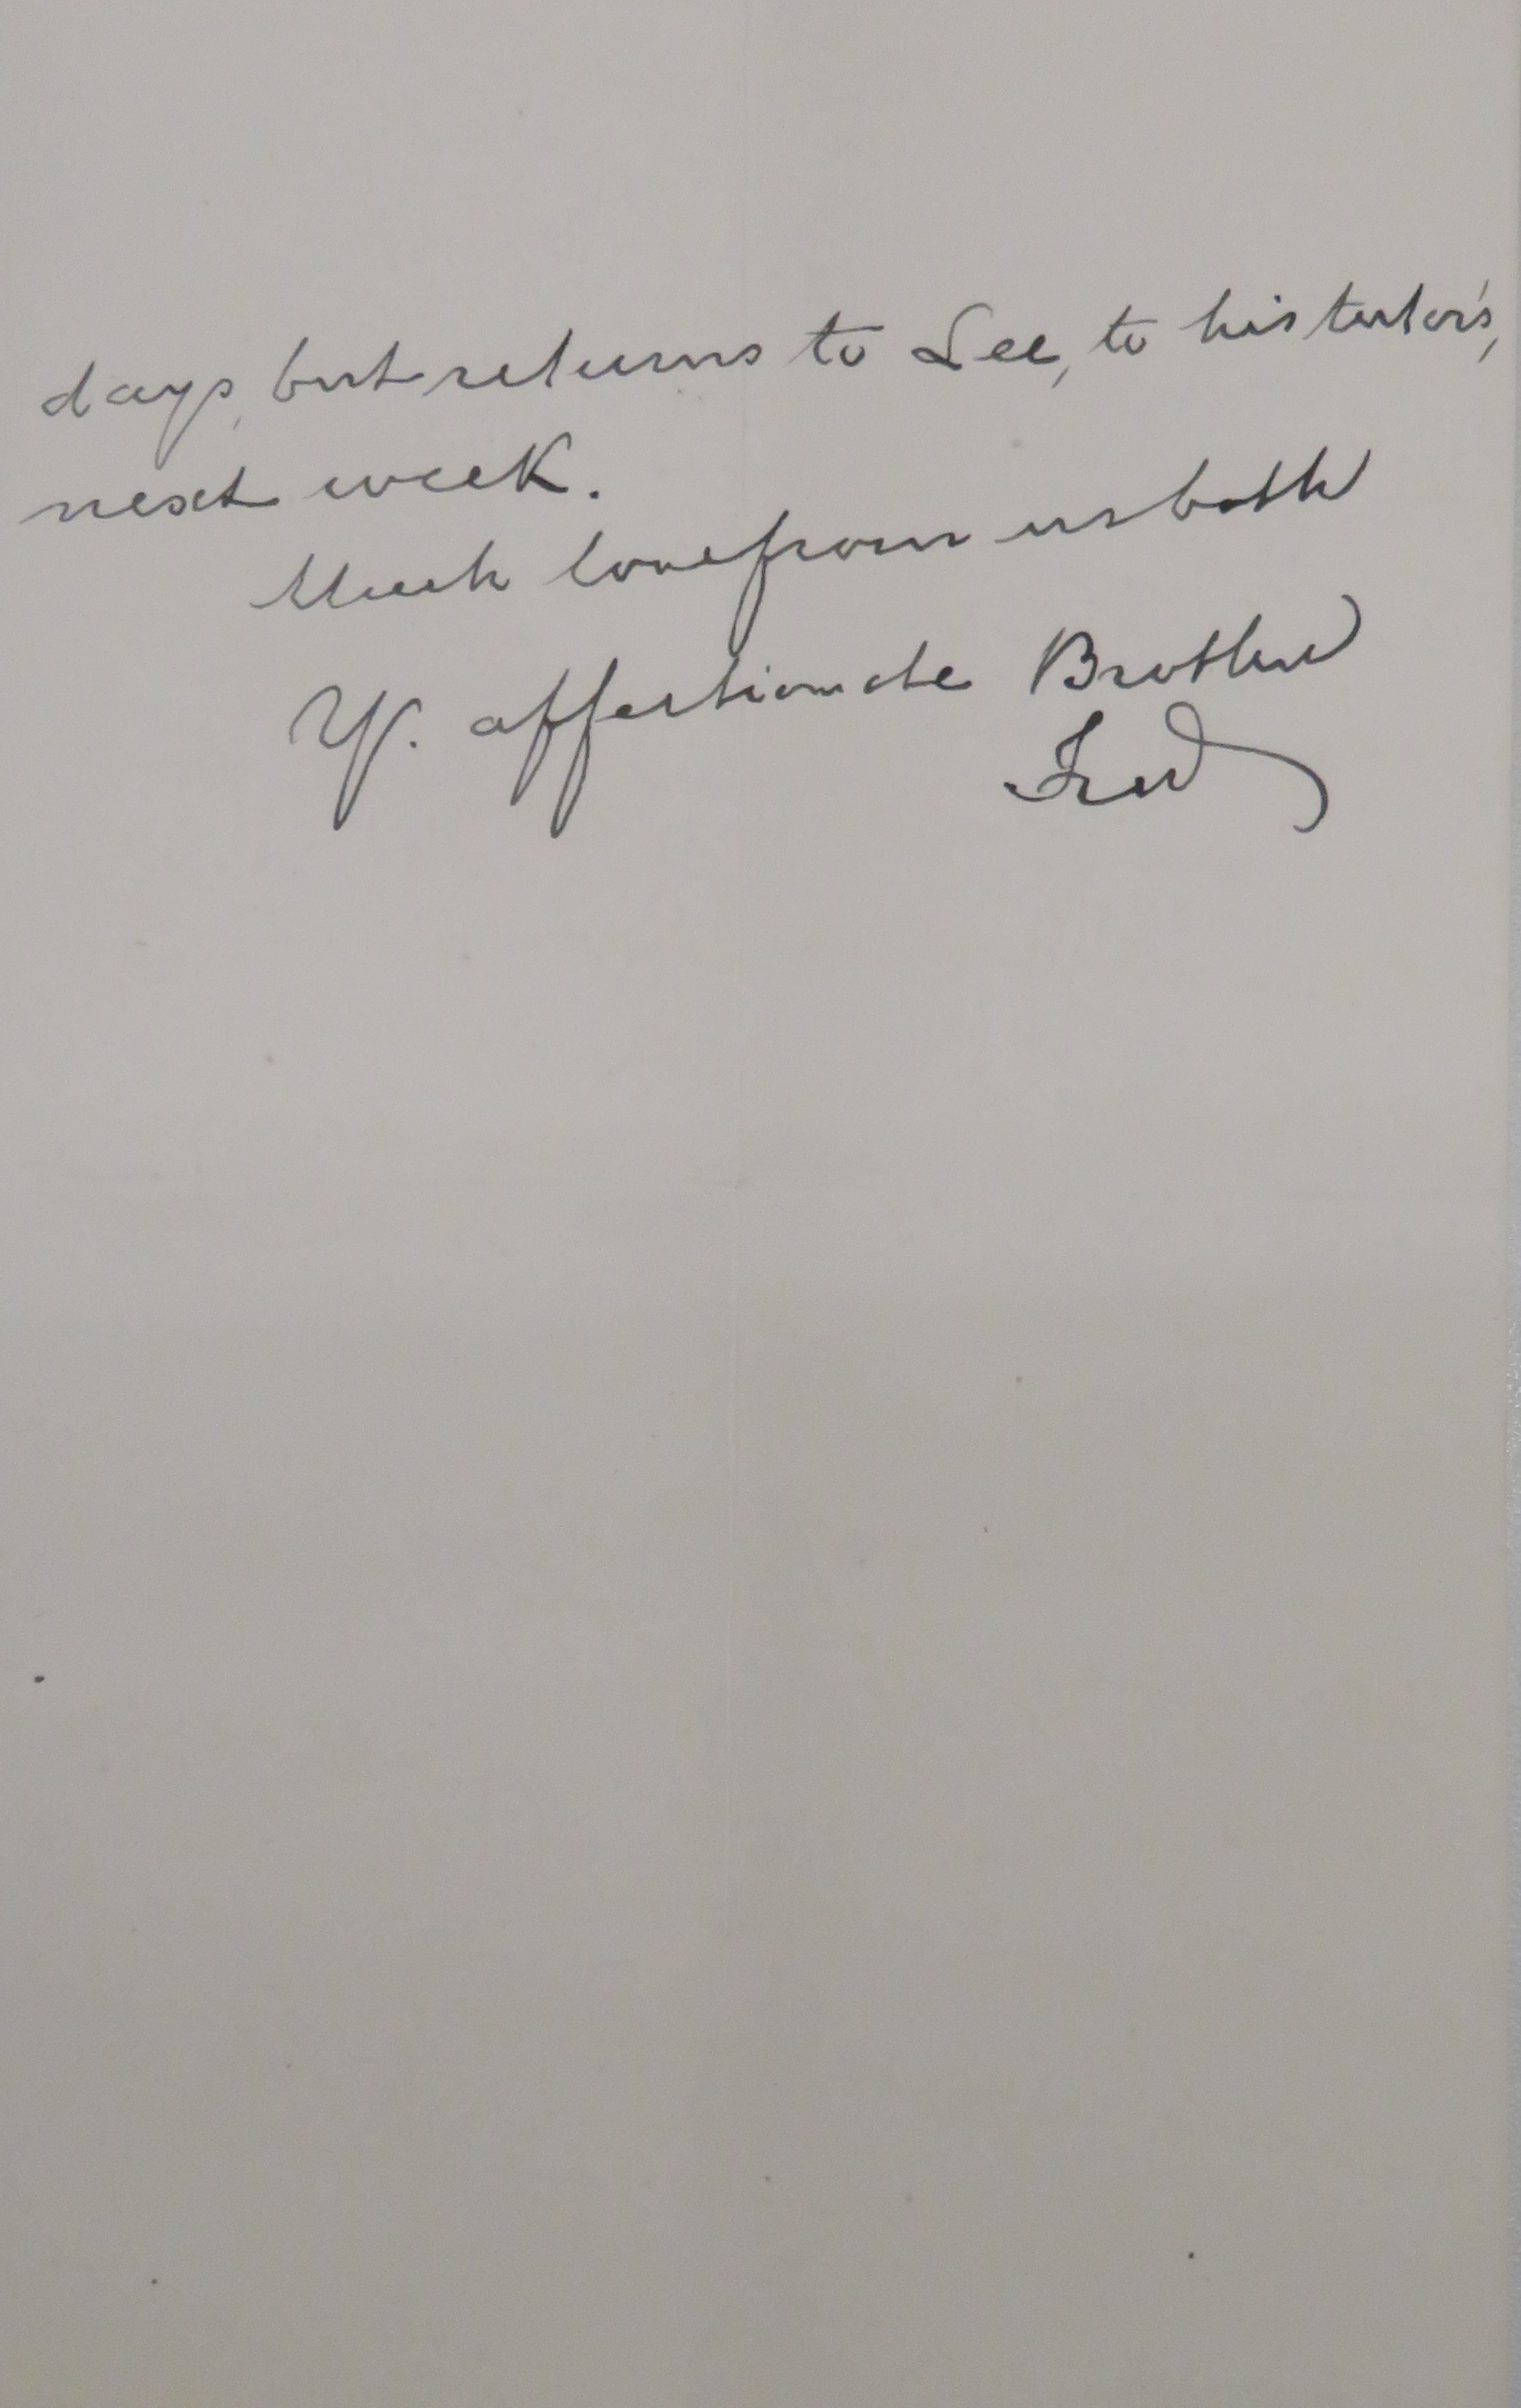 days, but returns to Lee, to his tutor's,
next week.
Much love from us both
Yr. affectionate Brother
Fred